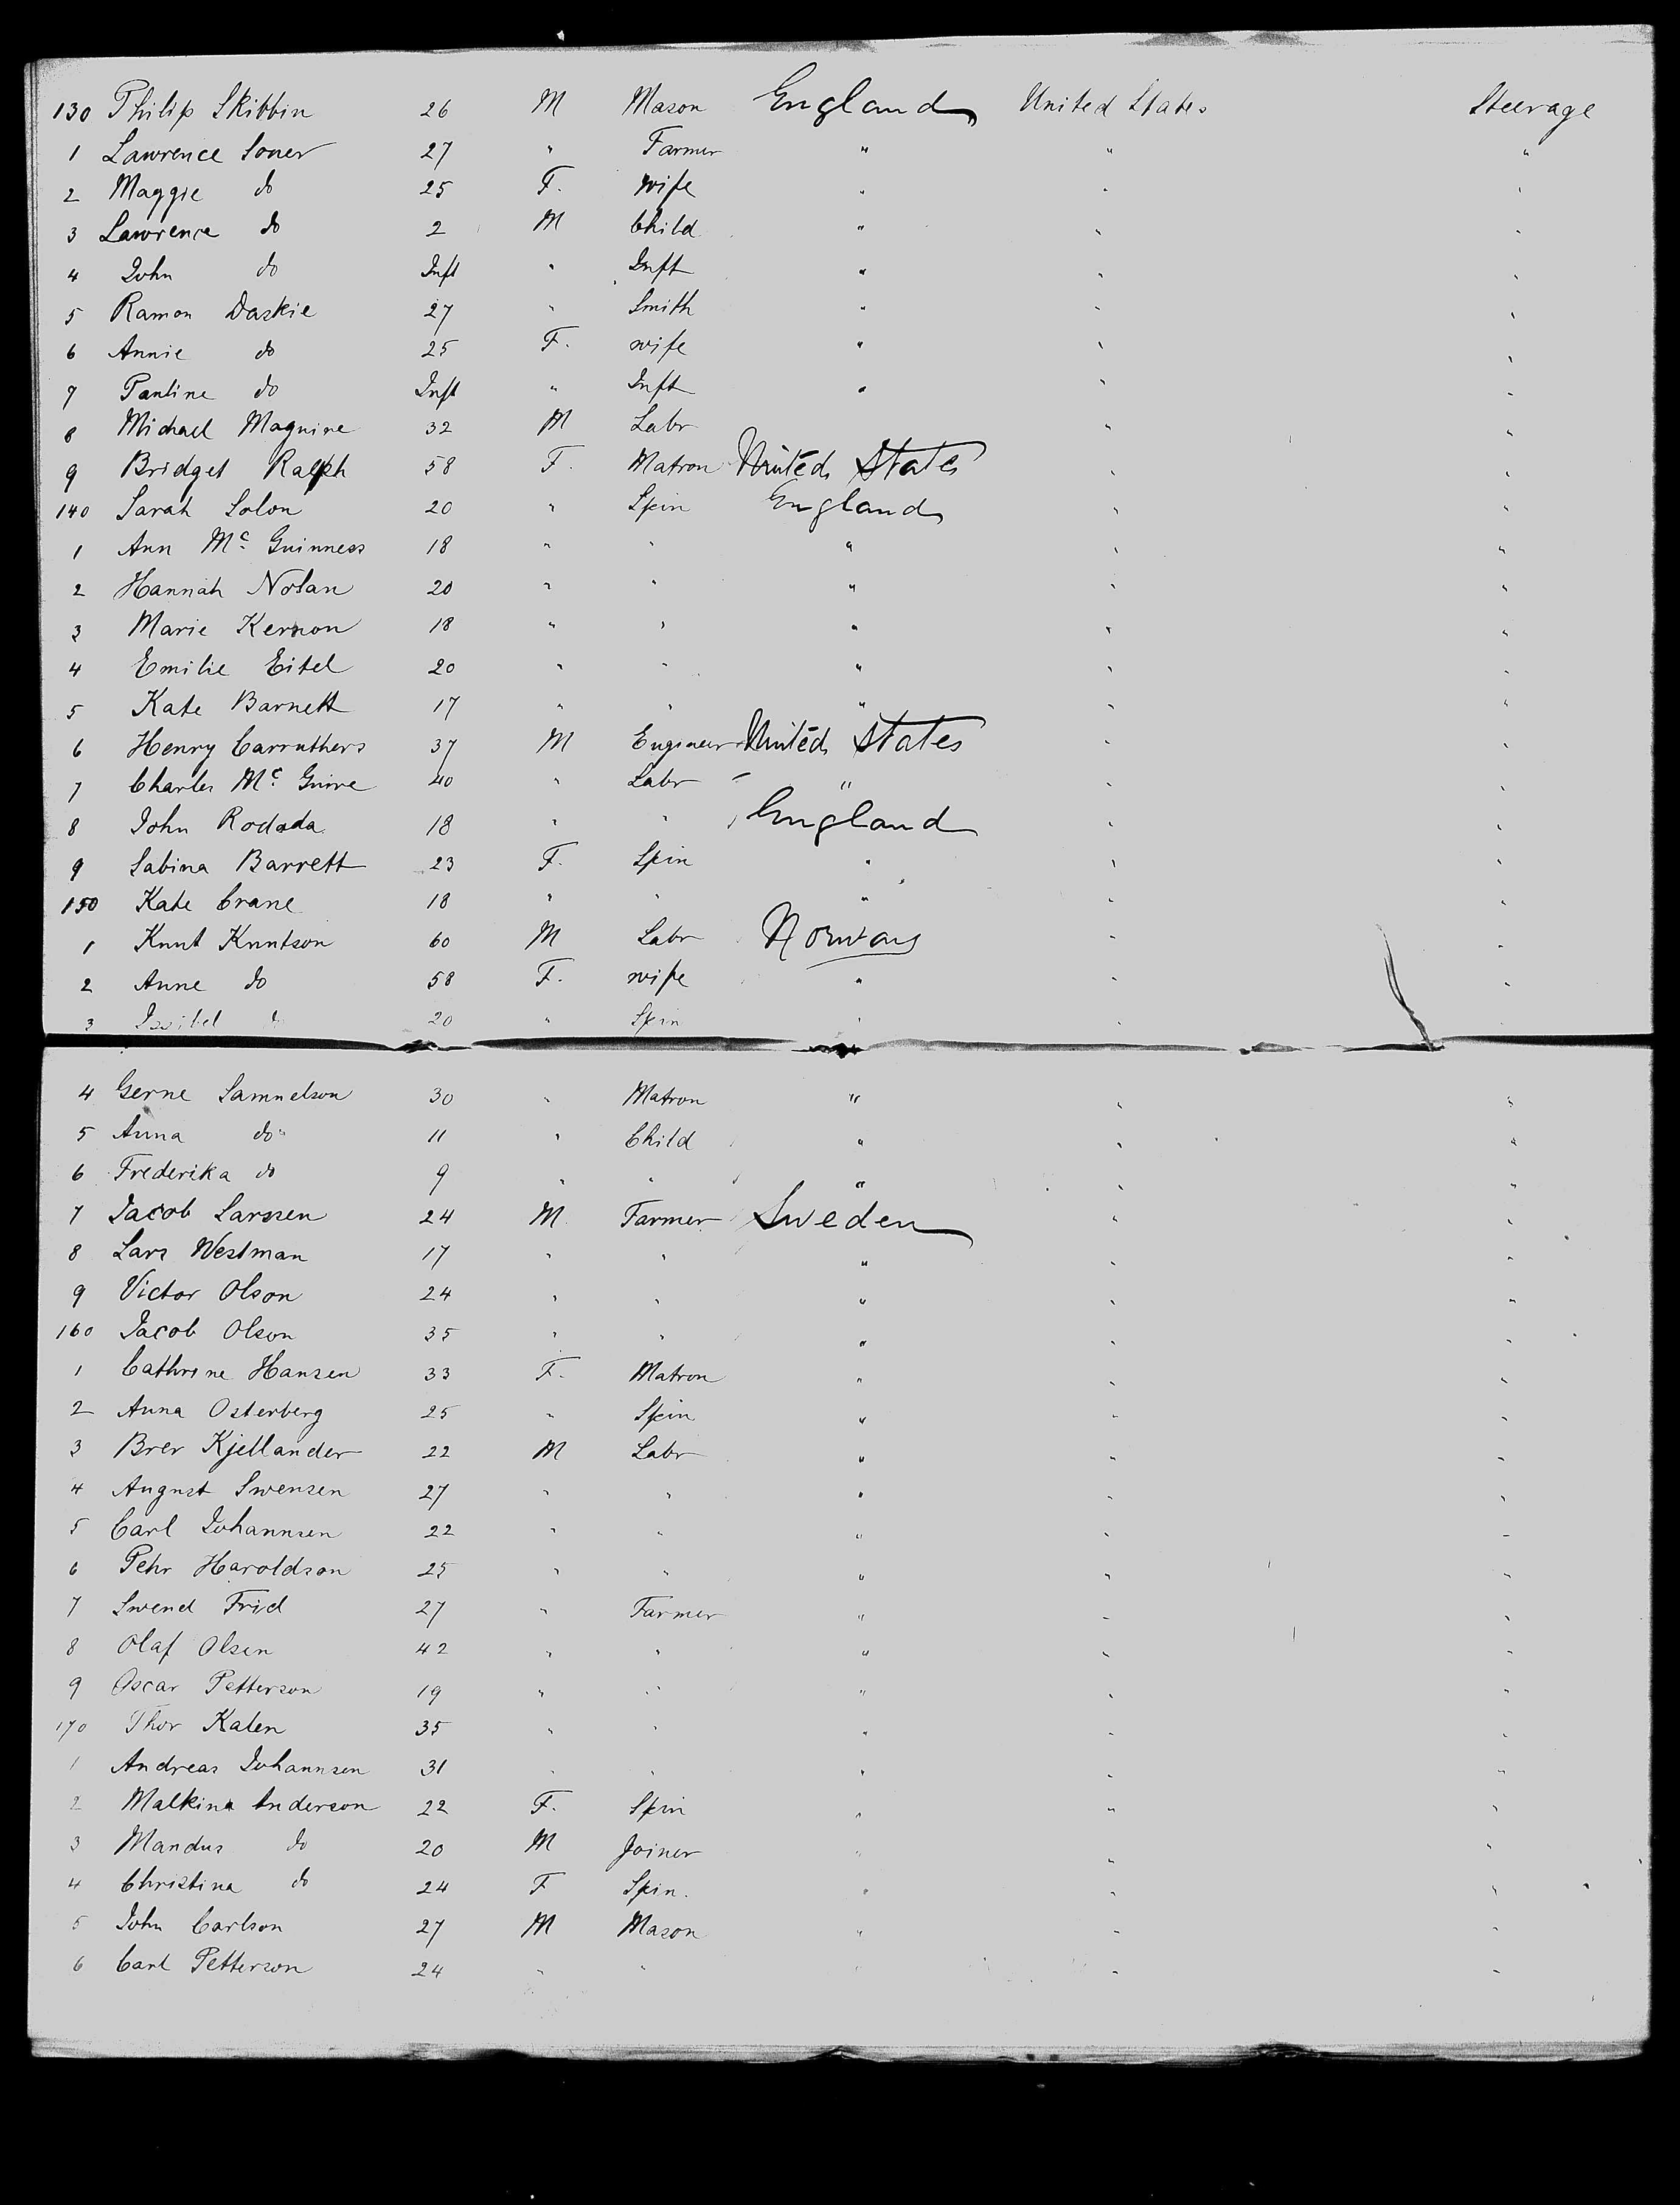 130 Philip Skibbin 26 M Mason England United States Steerage
1 Lawrence Soner 27 " Farmer " " "
2 Maggie do 25 F. wife " " "
3 Lawrence do 2 M Child " " "
4 John do Inft " Inft " " "
5 Ramon Daskie 27 " Smith " " "
6 Annie do 25 F. wife " " "
7 Pauline do Inft " Inft " " "
8 Michael Maguire 32 M Labr " "
9 Bridget Ralph 58 F. Matron United States " "
140 Sarah Solon 20 " Spin England " "
1 Ann Mc Guinness 18 " " " " "
2 Hannah Nolan 20 " " " " "
3 Marie Kernon 18 " " " " "
4 Emilie Eitel 20 " " " " "
5 Kate Barnett 17 " " " " "
6 Henry Carruthers 37 M Engineer United States " "
7 Charles Mc Guire 40 " Labr " " "
8 John Rodada 18 " " England " "
9 Sabina Barrett 23 F. Spin " " "
150 Kate Crane 18 " " " " "
1 Knut Knutson 60 M Labr Norway " "
2 Anne do 58 F. wife " " "
3 do 20 " Spin " " "
4 Gerne Samuelson 30 " Matron " " "
5 Anna do 11 " Child " " "
6 Frederika do 9 " " " " "
7 Jacob Larssen 24 M Farmer Sweden " "
8 Lars Westman 17 " " " " "
9 Victor Olson 24 " " " " "
160 Jacob Olson 35 " " " " "
1 Cathrine Hansen 33 F. Matron " " "
2 Anna Osterberg 25 " Spin " " "
3 Brer Kjellander 22 M Labr " " "
4 August Swensen 27 " " " " "
5 Carl Johannsen 22 " " " " "
6 Pehr Haroldson 25 " " " " "
7 Swend Frid 27 " Farmer " " "
8 Olaf Olsen 42 " " " " "
9 Oscar Petterson 19 " " " " "
170 Thor Kalen 35 " " " " "
1 Andreas Johannsen 31 " " " " "
2 Malkina Anderson 22 F. Spin " " "
3 Mandus do 20 M Joiner " " "
4 Christina do 24 F Spin. " " "
5 John Carlson 27 M Mason " " "
6 Carl Petterson 24 " " " " "